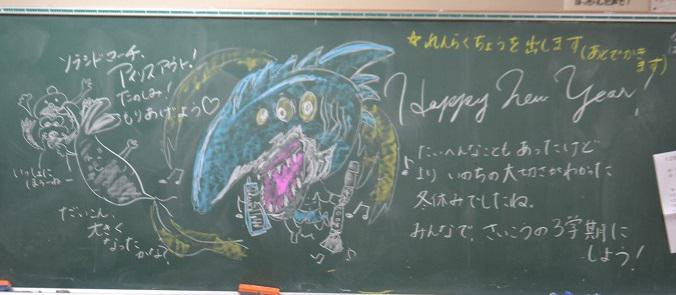 ☆れんらくちょうを出します(あとでかきます)
Happy New Year!
たいへんなこともあったけど
より いのちの大切さがわかった
冬休みでしたね。
みんなで、さいこうの3学期に
しよう!
ソラシドコーチ、
アイリスアウト!
たのしみ!
もりあげよう♡
だいこん、
大きく
なった
かな?